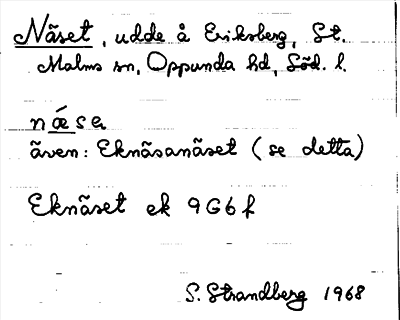 Näset, udde å Eriksberg, St.
Malms sn, Oppunda hd, Söd. l.
nǽsɛ
även: Eknäsanäset (se detta)
Eknäset ek 9G6f
S. Strandberg 1968